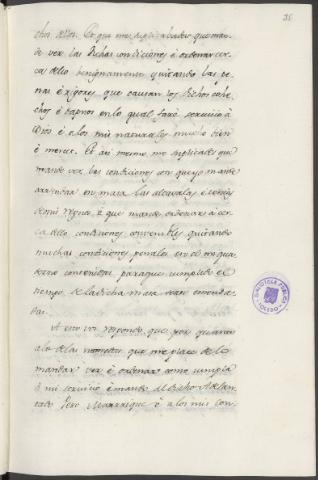 35
chos dellos. Et que me suplicabades que man-
de ver las dichas condiciones é ordenar cer-
ca dello benignamente quitando las pe-
nas é rigores que causan los dichos cohe-
chos é daptnos en lo qual faré servicio á
Dios é a los mis naturales mucho bien
é merce. Et asi mesmo me suplicades que
mande ver las condiciones con que yo mande
arrendar en masa las alcavalas é tercias
de mis regnos é que mande ordenar á cer-
ca dello condiciones convenibles quitando
muchas condiciones penales en el mi qua-
derno contenidas para que complido el
tiempo de la dicha masa sean enmenda-
das.
A esto vos respondo que por quanto
a lo de las monedas que me place de lo
mandar ver é ordenar como cumpla
á mi servicio é mando al dicho Adelan-
tado Pero Manrrique é a los mis con-
BIBLIOTECA PUBLICA
TOLEDO